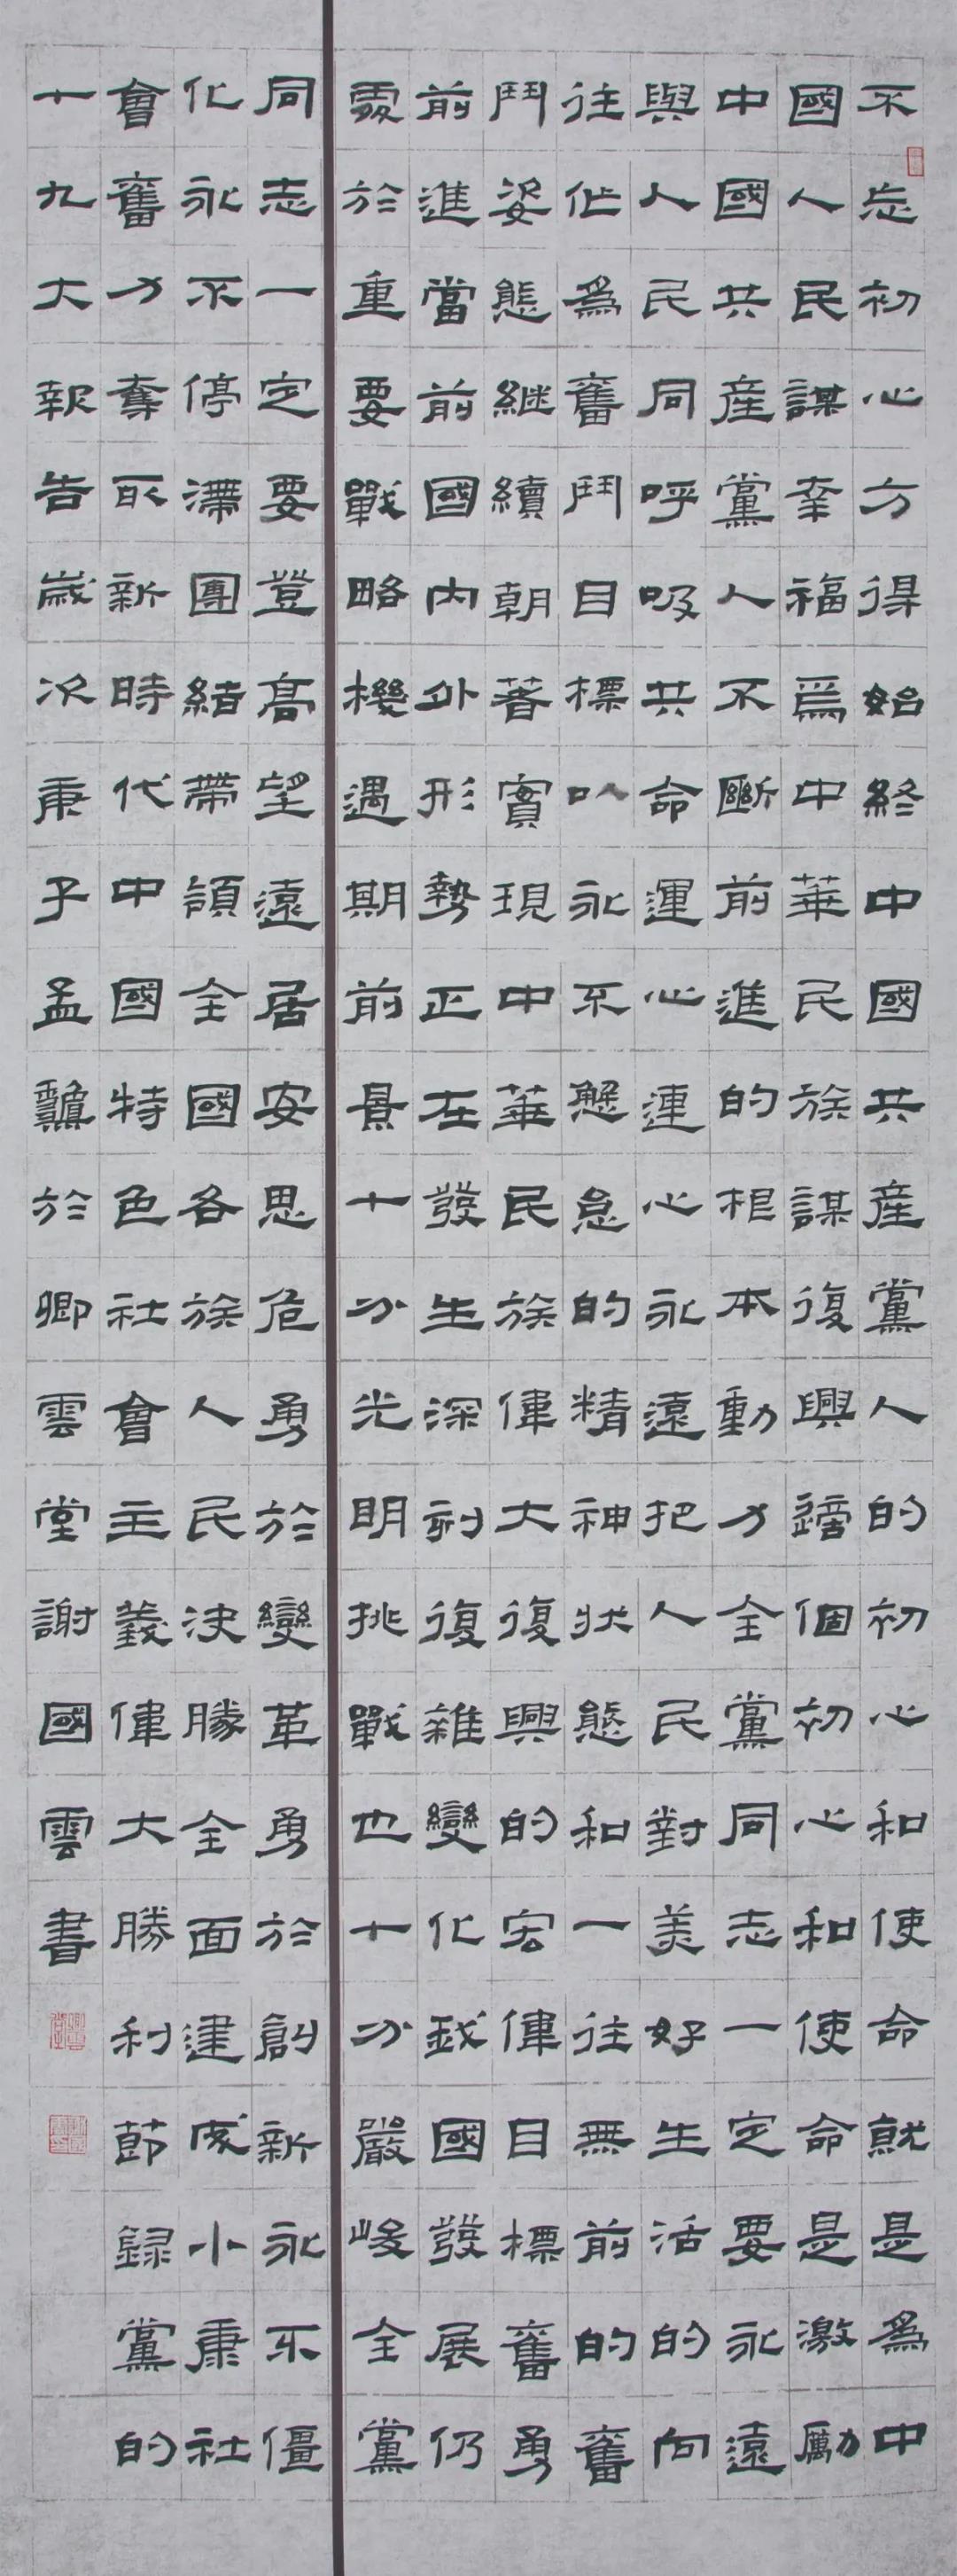 不忘初心方得始終中國共產黨人的初心和使命就是為中
國人民謀幸福爲中華民族謀復興這個初心和使命是激勵
中國共產黨人不斷前進的根本動力全黨同志一定要永遠
與人民同呼吸共命運心連心永遠把人民對美好生活的向
往作為奮鬥目標以永不懈怠的精神狀態和一往無前的奮
鬥姿態繼續朝着實現中華民族偉大復興的宏偉目標奮勇
前進當前國內外形勢正在發生深刻復雜變化我國發展仍
處於重要戰略機遇期前景十分光明挑戰也十分嚴峻全黨
同志一定要登高望遠居安思危勇於變革勇於創新永不僵
化永不停滯團結帶領全國各族人民決勝全面建成小康社
會奮力奪取新時代中國特色社會主義偉大勝利節錄黨的
十九大報告歲次庚子孟龝於卿雲堂謝國雲書